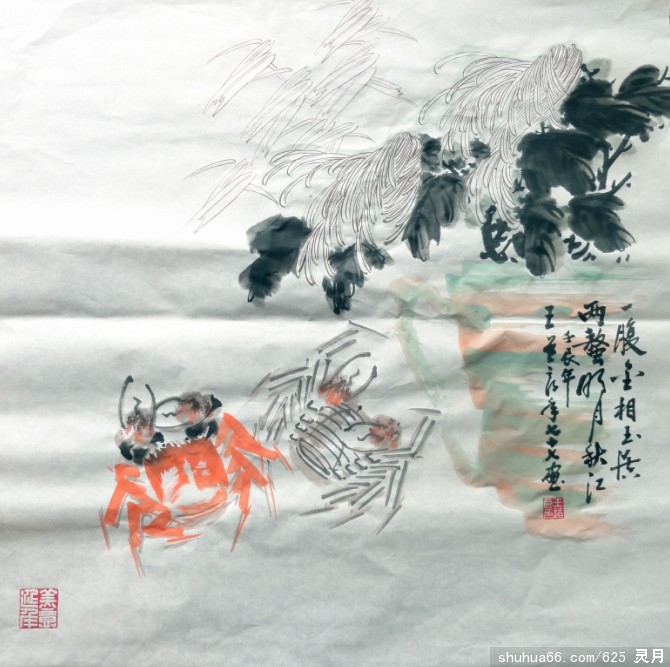 一腹金相玉质
两螯明月秋江
壬辰年
王兰亭年七十七画
美意
延年
shuhua66.com/625 灵月